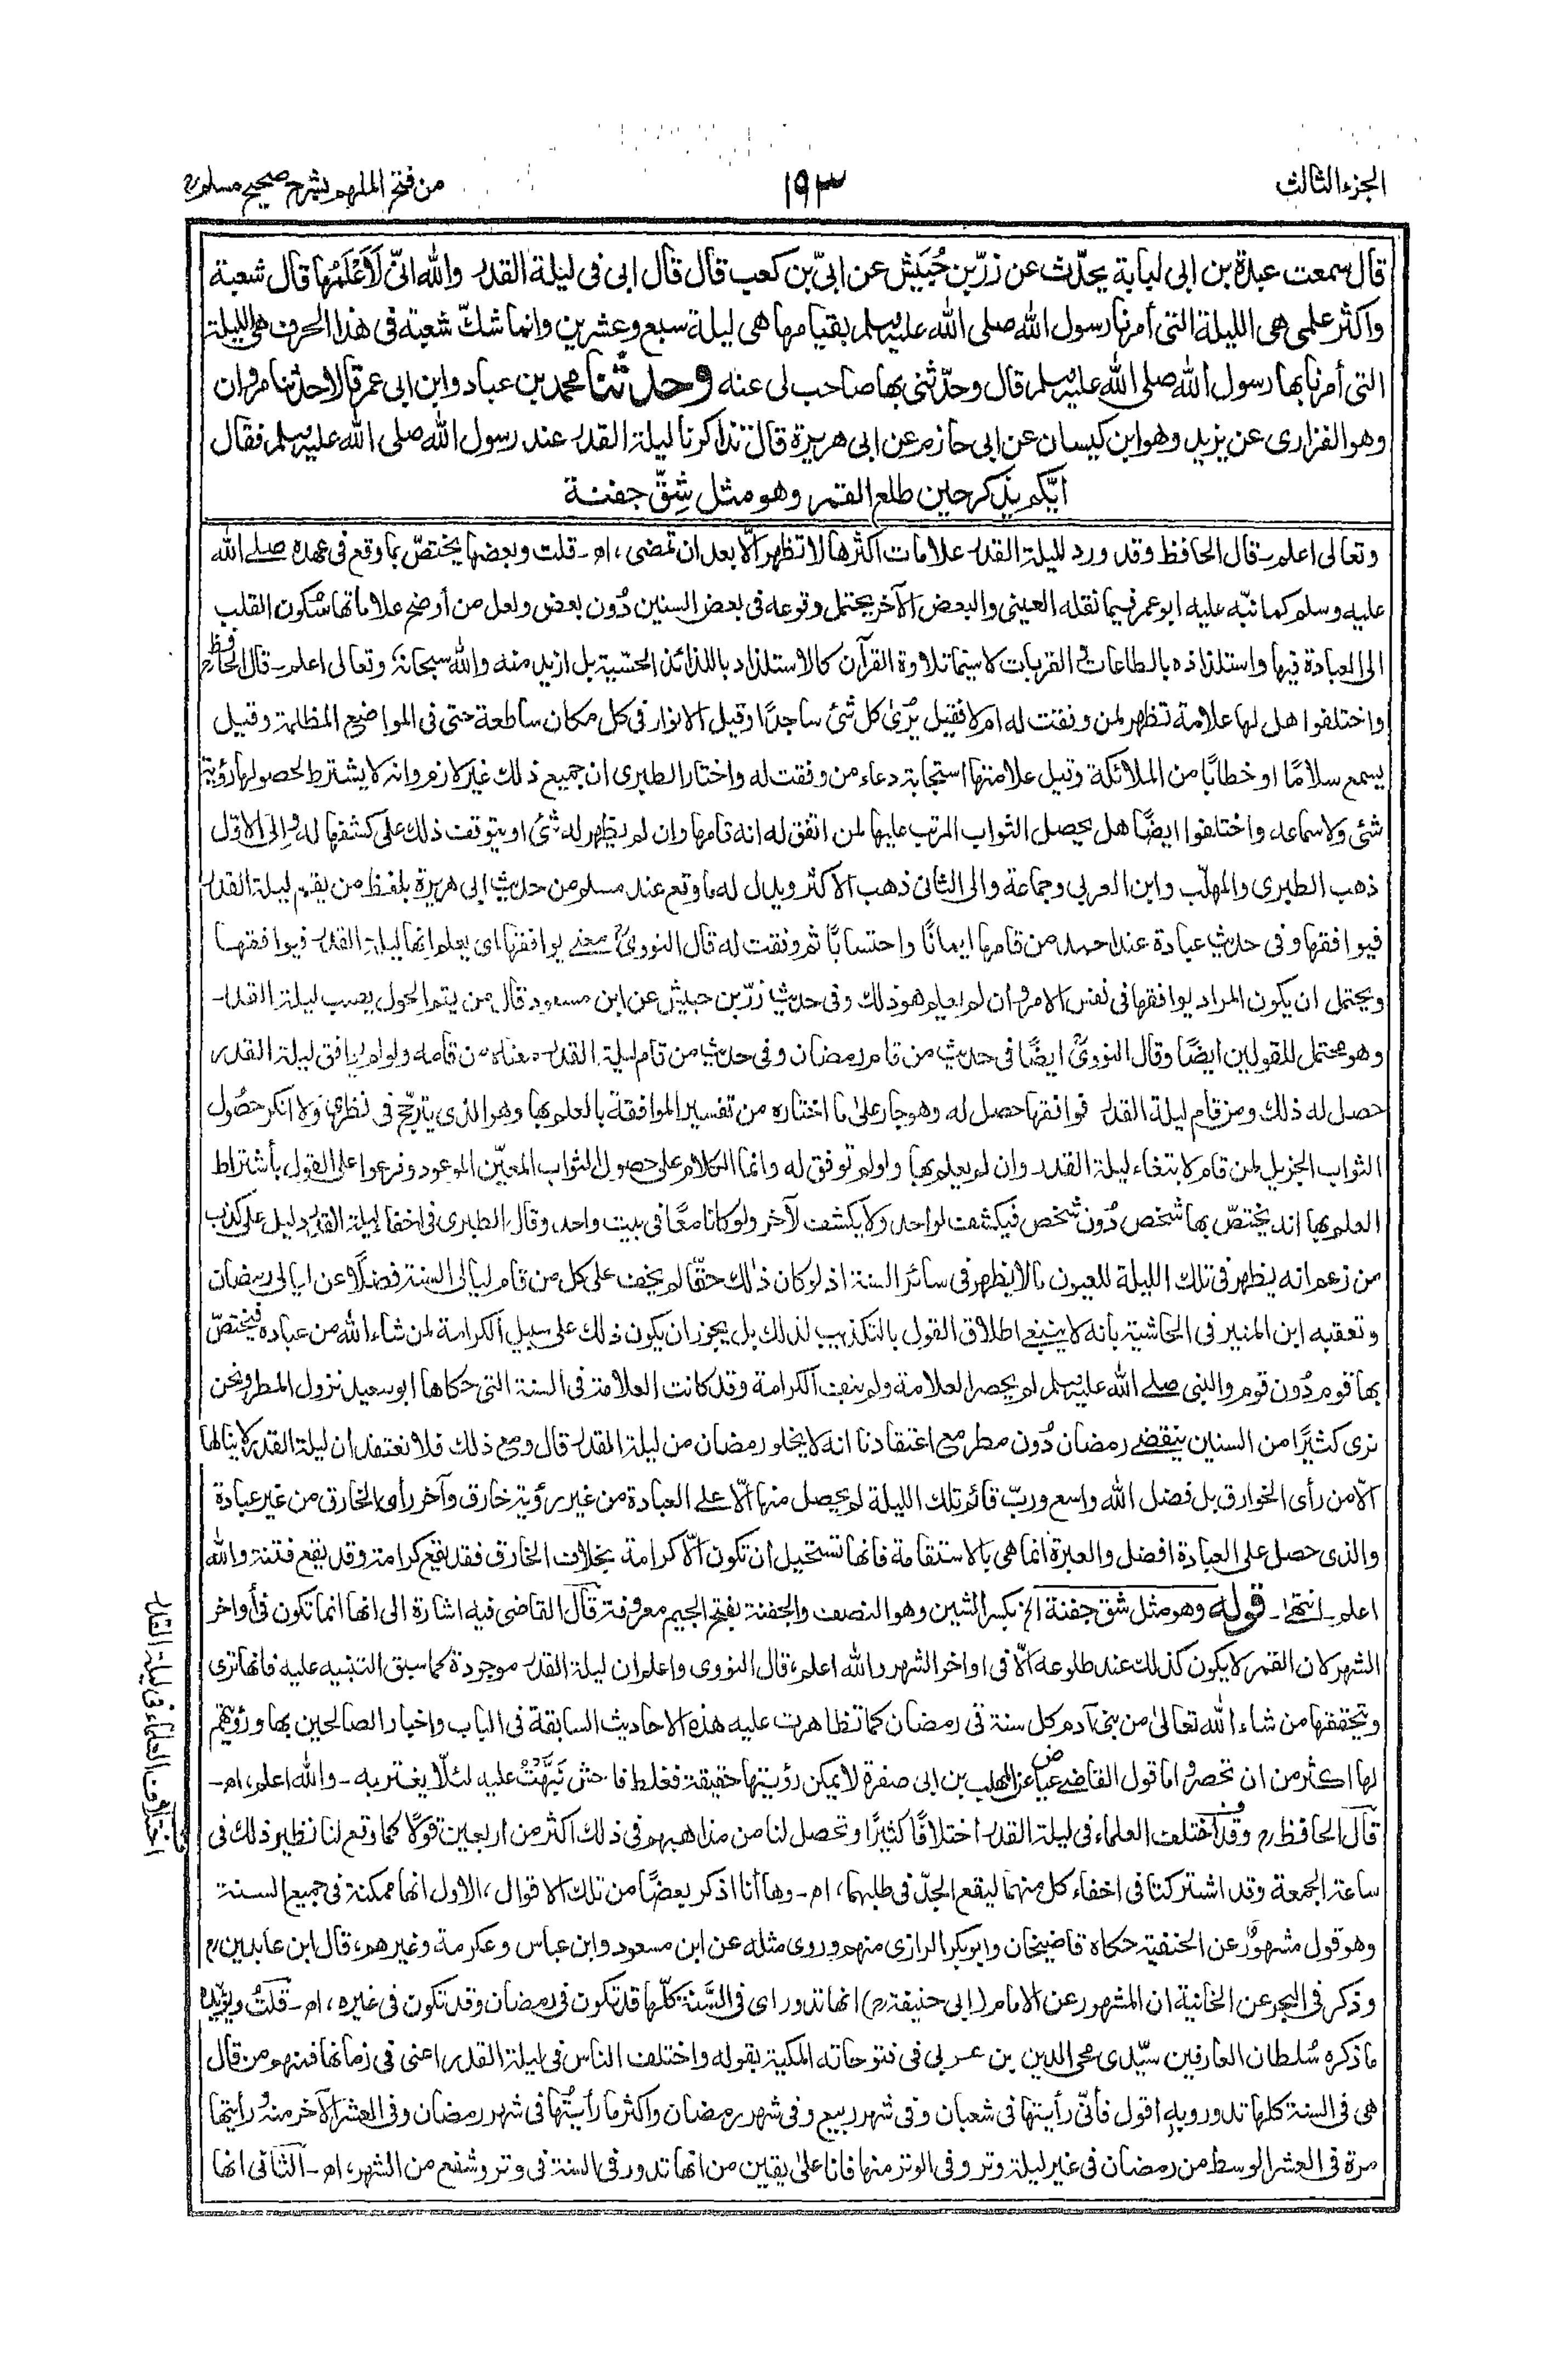 الجزء الثالث
١٩٣
من فتح الملهم بشرح صحيح مسلم
قال سمعت عبدة بن ابى لبابة يحدّث عن زرّ بن حُبَيْش عن ابىّ بن كعب قال قال ابى فى ليلة القدر والله انىّ لَاَعْلَمُها قال شعبة
واكثر علمى هى الليلة التى أمرنا رسول الله صلى الله عليه وسلم بقيامها هى ليلة سبع وعشرين وانما شكّ شعبة فى هذا الحرف هى الليلة
التى أمرنا بها رسول الله صلى الله عليه وسلم قال وحدّثنى بها صاحب لى عنه وحدثنا محمد بن عباد وابن ابى عمر قالا حدثنا مروان
وهو الفزارى عن يزيد وهو ابن كيسان عن ابى حازم عن ابى هريرة قال تذاكرنا ليلة القدر عند رسول الله صلى الله عليه وسلم فقال
ايّكم يذكر حين طلع القمر وهو مثل شِقّ جفنة
وتعالى اعلم ـ قال الحافظ وقد ورد لليلة القدر علامات اكثرها لا تظهر الّا بعد ان تمضى، اه ـ قلت وبعضها يختصّ بما وقع فى عهده صلے الله
عليه وسلم كما نبّه عليه ابو عمر فيما نقله العينى والبعض الآخر يحتمل وقوعه فى بعض السنين دُون بعض ولعل من أوضح علاماتها سُكون القلب
الى العبادة فيها واستلذاذه بالطاعات والقربات لا سيّما تلاوة القرآن كالاستلذاذ باللذائذ الحسّية بل ازيد منه والله سبحانهٗ وتعالى اعلم ـ قال الحافظ
واختلفوا هل لها علامة تظهر لمن وفقت له ام لا فقيل يُرىٰ كل شئ ساجدًا وقيل الانوار فى كل مكان ساطعة حتى فى المواضيع المظلمة وقيل
يسمع سلامًا او خطابًا من الملائكة وقيل علامتها استجابة دعاء من وفقت له واختار الطبرى ان جميع ذلك غير لازم وانه لا يشترط لحصولها رؤية
شئ ولا سماعه واختلفوا ايضًا هل يحصل الثواب المرتب عليها لمن اتفق له انه قامها وان لم يظهر له شئ او يتوقف ذلك على كشفها له والى الاوّل
ذهب الطبرى والمهلّب وابن العربى وجماعة والى الثانى ذهب الاكثر ويدل له ما وقع عند مسلم من حديث ابى هريرة بلفظ من يقم ليلة القدر
فيوافقها وفى حديث عبادة عند احمد من قامها ايمانًا واحتسابًا ثم وفقت له قال النووىؒ معنے يوافقها اى يعلم انها ليلة القدر فيوافقها
ويحتمل ان يكون المراد يوافقها فى نفس الامر وان لم يعلم هو ذلك وفى حديث زرّ بن حبيش عن ابن مسعود قال من يقم الحول يصب ليلة القدر ـ
وهو محتمل للقولين ايضًا وقال النووىؒ ايضًا فى حديث من قام رمضان وفى حديث من قام ليلة القدر معناه من قامه ولو لم يوافق ليلة القدر
حصل له ذلك ومن قام ليلة القدر فوافقها حصل له وهو جار علىٰ ما اختاره من تفسير الموافقة بالعلم بها وهو الذى يترجّح فى نظرى ولا انكر حصُول
الثواب الجزيل لمن قام لابتغاء ليلة القدر وان لم يعلم بها ولو لم توفق له وانما الكلام على حصول الثواب المعيّن الموعود وفرعوا على القول بأشتراط
العلم بها انه يختصّ بها شخص دُون شخص فيكشف لواحد ولا يكشف لآخر ولو كانا معًا فى بيت واحد وقال الطبرى فى اخفاء ليلة القدر دليل على كذب
من زعم انه يظهر فى تلك الليلة للعيون ما لا يظهر فى سائر السنة اذ لو كان ذٰلك حقّا لم يخف على كل من قام ليالى السنة فضلًا عن ليالى رمضان
وتعقبه ابن المنير فى الحاشية بأنه لا ينبغے اطلاق القول بالتكذيب لذلك بل يجوز ان يكون ذلك على سبيل الكرامة لمن شاء الله من عباده فيختصّ
بها قوم دُون قوم والنبى صلے الله عليه وسلم لم يحصر العلامة ولم ينف الكرامة وقد كانت العلامة فى السنة التى حكاها ابو سعيد نزول المطر ونحن
نرى كثيرًا من السنين ينقضے رمضان دُون مطر مع اعتقادنا انه لا يخلو رمضان من ليلة القدر قال ومع ذلك فلا نعتقد ان ليلة القدر لا ينالها
الّا من رأى الخوارق بل فضل الله واسع وربّ قائم تلك الليلة لم يحصل منها الّا علے العبادة من غير رؤية خارق وآخر رأى الخارق من غير عبادة
والذى حصل على العبادة افضل والعبرة انما هى بالاستقامة فانها تستحيل ان تكون الّا كرامة بخلاف الخارق فقد يقع كرامة وقد يقع فتنة والله
اعلم ـ انتهٰے ـ قوله وهو مثل شق جفنة الخ بكسر الشين وهو النصف والجفنة بفتح الجيم معروفة قال القاضى فيه اشارة الى انها انما تكون فى أواخر
الشهر لان القمر لا يكون كذلك عند طلوعه الّا فى اواخر الشهر والله اعلم، قال النووى واعلم ان ليلة القدر موجودة كما سبق التنبيه عليه فانها ترى
ويتحققها من شاء الله تعالىٰ من بنى آدم كل سنة فى رمضان كما تظاهرت عليه هذه الاحاديث السابقة فى الباب واخبار الصالحين بها ورؤيتهم
لها اكثر من ان تحصر واما قول القاضے عياض عن المهلب بن ابى صفرة لا يمكن رؤيتها حقيقة فغلط فاحش نَبَّهْتُ عليه لئلّا يغتر به ـ والله اعلم، اه ـ
قال الحافظ وقد اختلف العلماء فى ليلة القدر اختلافًا كثيرًا وتحصل لنا من مذاهبهم فى ذلك اكثر من اربعين قولًا كما وقع لنا نظير ذلك فى
ساعة الجمعة وقد اشتركتا فى اخفاء كل منهما ليقع الجدّ فى طلبهما، اه ـ وها أنا اذكر بعضًا من تلك الاقوال، الاول انها ممكنة فى جميع السنة
وهو قول مشهورٌ عن الحنفية حكاه قاضيخان وابو بكر الرازى منهم وروى مثله عن ابن مسعود وابن عباس وعكرمة وغيرهم، قال ابن عابدين
وذكر فى البحر عن الخانية ان المشهور عن الامام (ابى حنيفة) انها تدور اى فى السَّنة كلّها قد تكون فى رمضان وقد تكون فى غيره، اه ـ قلتُ ويؤيّده
ما ذكره سُلطان العارفين سيّدى محى الدين بن عربى فى فتوحاته المكية بقوله واختلف الناس فى ليلة القدر اعنى فى زمانها فمنهم من قال
هى فى السنة كلها تدور وبه اقول فأنّى رأيتها فى شعبان وفى شهر ربيع وفى شهر رمضان واكثر ما رأيتُها فى شهر رمضان وفى العشر الآخر منهُ ورأيتها
مرة فى العشر الوسط من رمضان فى غير ليلة وتر وفى الوتر منها فانا علىٰ يقين من انها تدور فى السنة فى وتر وشفع من الشهر، اه ـ الثانى انها
اختلاف العلماء فى ليلة القدر